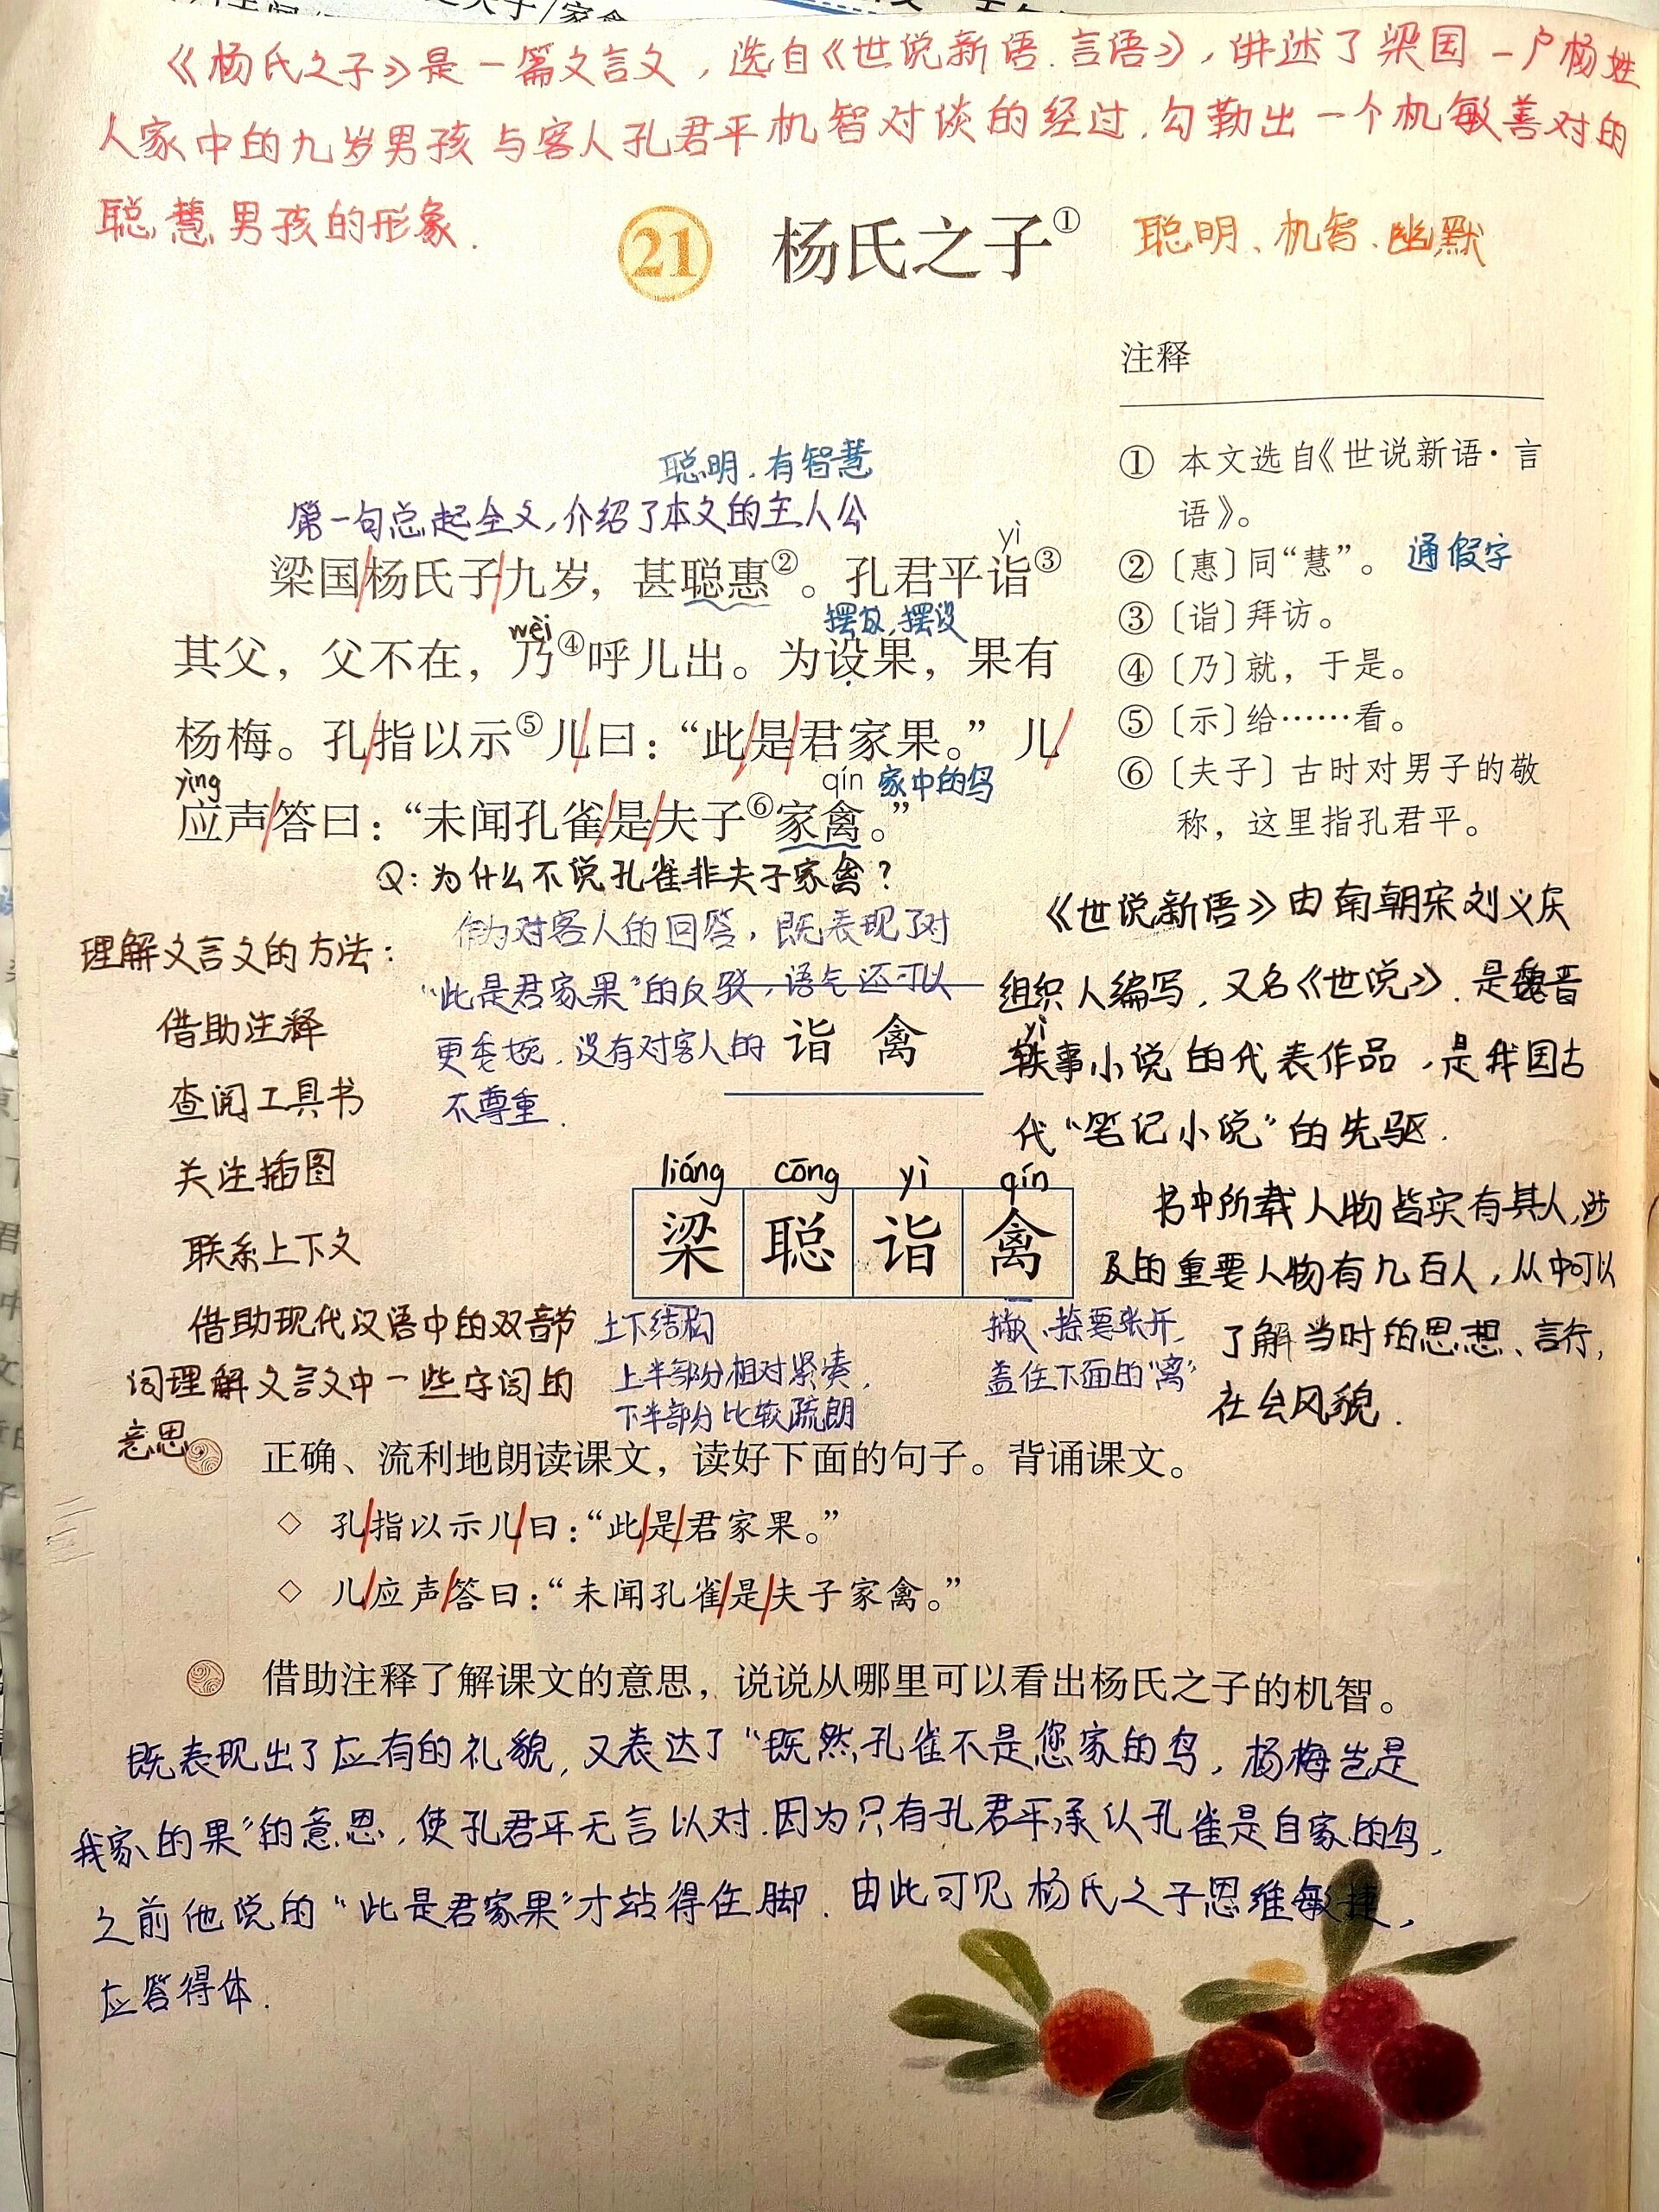 《杨氏之子》是一篇文言文，选自《世说新语.言语》，讲述了梁国一户杨姓
人家中的九岁男孩与客人孔君平机智对谈的经过，勾勒出一个机敏善对的
聪慧男孩的形象.
21 杨氏之子①
聪明、机智、幽默
注释
① 本文选自《世说新语·言
语》。
②〔惠〕同“慧”。 通假字
③〔诣〕拜访。
④〔乃〕就，于是。
⑤〔示〕给……看。
⑥〔夫子〕古时对男子的敬
称，这里指孔君平。
聪明、有智慧
第一句总起全文，介绍了本文的主人公
yì
梁国/杨氏子/九岁，甚聪惠②。孔君平诣③
wèi 摆放、摆设
其父，父不在，乃④呼儿出。为设果，果有
杨梅。孔/指以示⑤儿/曰：“此/是/君家果。”儿/
yìng qín 家中的鸟
应声/答曰：“未闻孔雀/是/夫子⑥家禽。”
Q：为什么不说孔雀非夫子家禽？
作为对客人的回答，既表现了对
“此是君家果”的反驳，语气还可以
更委婉，没有对客人的
不尊重.
诣 禽
理解文言文的方法：
借助注释
查阅工具书
关注插图
联系上下文
借助现代汉语中的双音节
词理解文言文中一些字词的
意思
《世说新语》由南朝宋刘义庆
组织人编写，又名《世说》.是魏晋
yì
轶事小说的代表作品，是我国古
代“笔记小说”的先驱.
书中所载人物皆实有其人，涉
及的重要人物有几百人，从中可以
了解当时的思想、言行，
社会风貌.
liáng cōng yì qín
梁 聪 诣 禽
上下结构
上半部分相对紧凑，
下半部分比较疏朗
撇、捺要张开，
盖住下面的“离”
正确、流利地朗读课文，读好下面的句子。背诵课文。
◇ 孔/指以示儿/曰：“此/是/君家果。”
◇ 儿/应声/答曰：“未闻孔雀/是/夫子家禽。”
借助注释了解课文的意思，说说从哪里可以看出杨氏之子的机智。
既表现出了应有的礼貌，又表达了“既然孔雀不是您家的鸟，杨梅岂是
我家的果”的意思，使孔君平无言以对.因为只有孔君平承认孔雀是自家的鸟，
之前他说的“此是君家果”才站得住脚.由此可见杨氏之子思维敏捷，
应答得体.